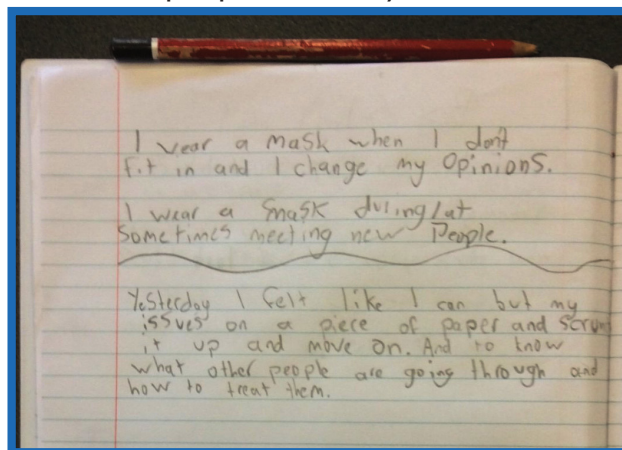 I wear a mask when I don't
fit in and I change my Opinions.
I wear a mask during/at
sometimes meeting new People.
Yesterday I felt like I can but my
issues on a piece of paper and scrum
it up and move on. And to know
what other people are going through and
how to treat them.